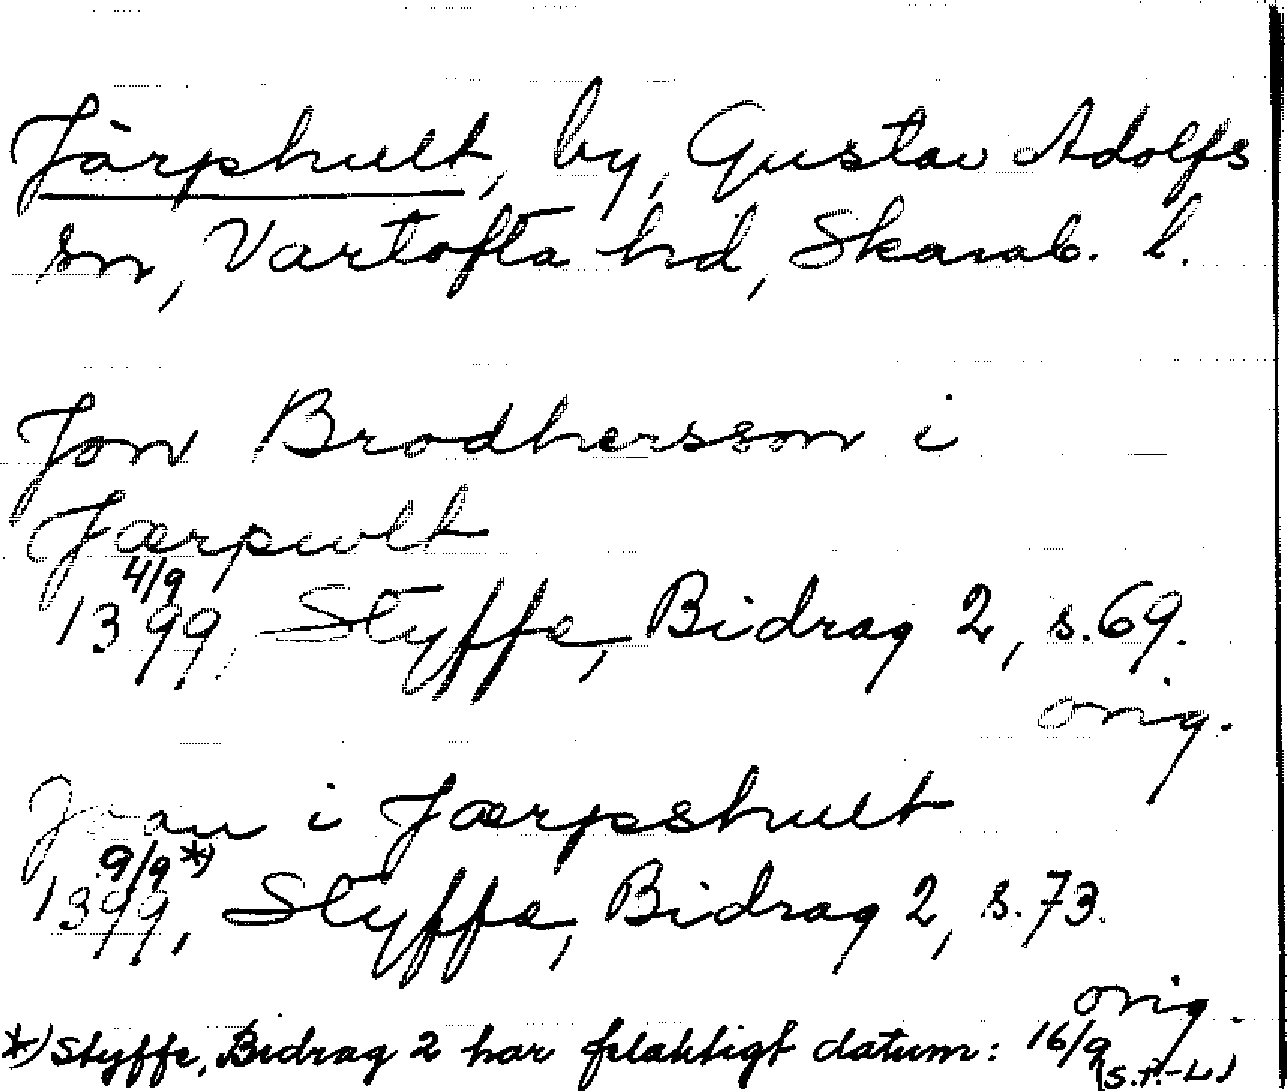 Järphult, by, Gustav Adolfs
sn, Vartofta hd, Skarab. l.
Jon Brodhersson i
Jærpwlt
4/9
1399, Styffe, Bidrag 2, s. 69.
orig.
i Jærpshult
9/9 *)
1399, Styffe, Bidrag 2, s. 73.
orig.
*) Styffe, Bidrag 2 har felaktigt datum: 16/9